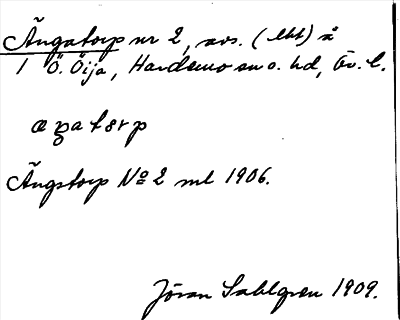 Ängatorp nr 2, avs. (lht) å
1 Ö. Öija, Hardemo sn o. hd, Ör. l.
aŋatɵrp
Ängstorp No 2 ml 1906.
Jöran Sahlgren 1909.